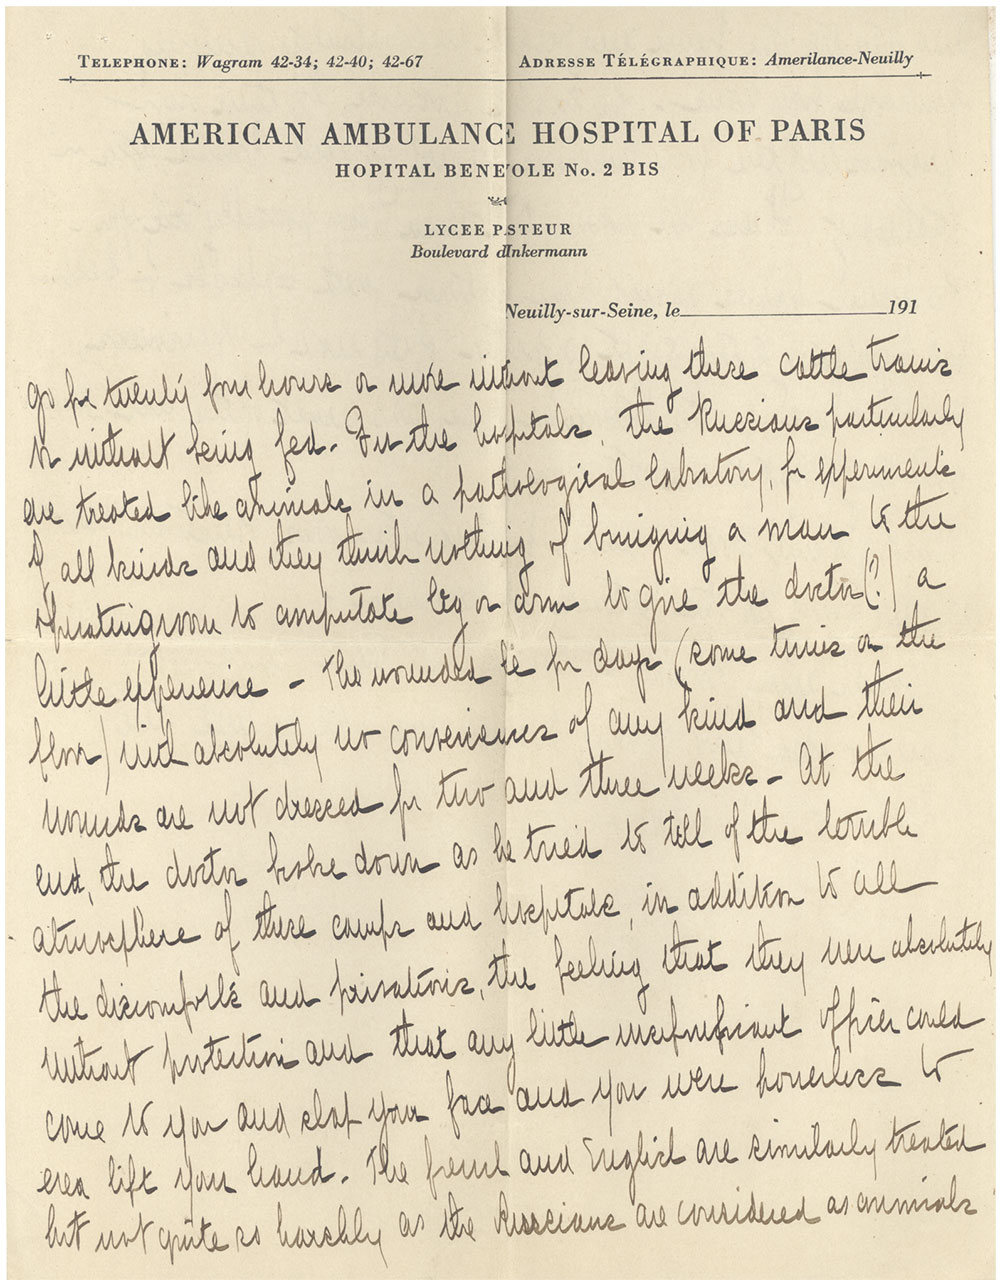 TELEPHONE: Wagram 42-34; 42-40; 42-67
ADRESSE TÉLÉGRAPHIQUE: Amerilance-Neuilly
AMERICAN AMBULANCE HOSPITAL OF PARIS
HOPITAL BENE'OLE No. 2 BIS
LYCEE PSTEUR
Boulevard d'Inkermann
Neuilly-sur-Seine, le 191
go for twenty four hours or more without leaving these cattle trains
or without being fed. In the hospitals, the Russians particularly
are treated like animals in a pathological labratory, for experiments
of all kinds and they think nothing of bringing a man to the
operating room to amputate leg or arm to give the doctor (?) a
little experience – The wounded lie for days (some times on the
floor) with absolutely no conveniences of any kind and their
wounds are not dressed for two and three weeks – At the
end, the doctor broke down as he tried to tell of the terrible
atmosphere of these camps and hospitals, in addition to all
the discomforts and privations, the feeling that they were absolutely
without protection and that any little insignificant officer could
come to you and slap your face and you were powerless to
even lift your hand. The french and English are similarly treated
but not quite so harshly as the Russians are considered as animals